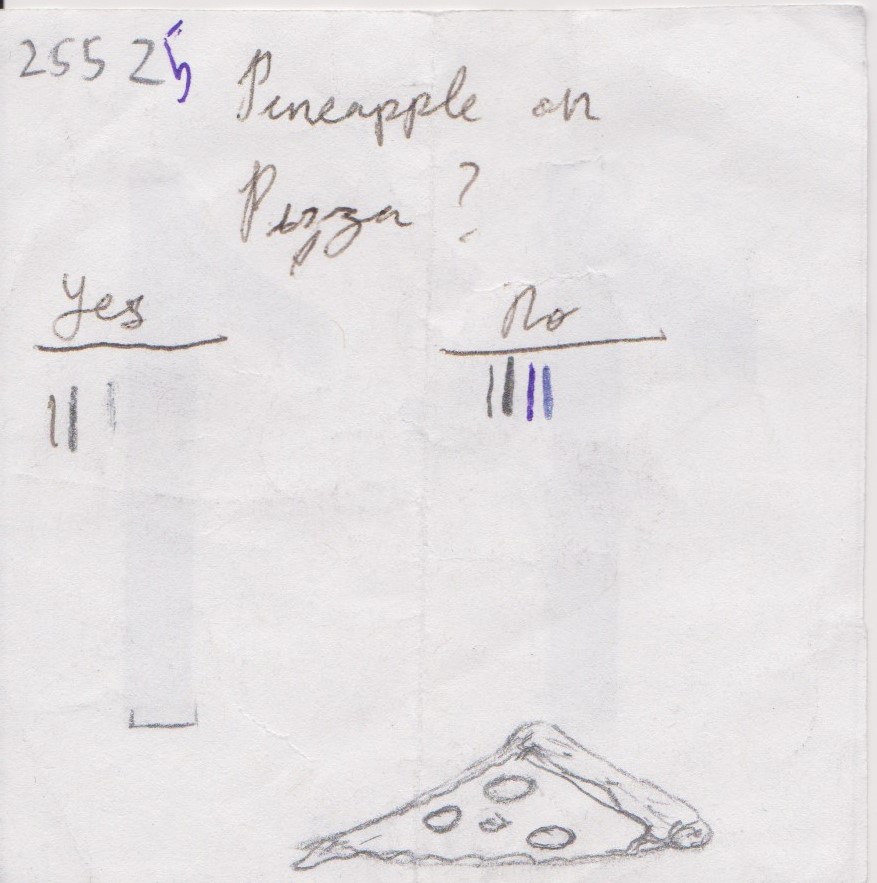 25525
Pineapple on
Pizza?
Yes No
||| ||||